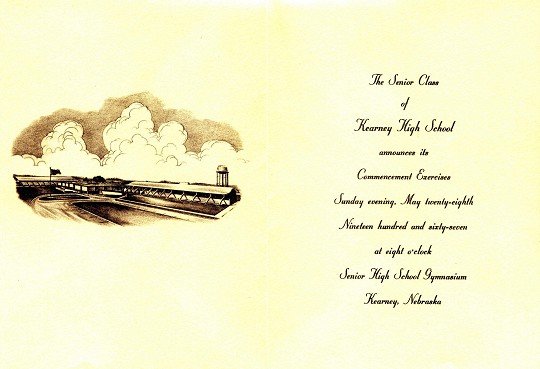 The Senior Class
of
Kearney High School
announces its
Commencement Exercises
Sunday evening, May twenty-eighth
Nineteen hundred and sixty-seven
at eight o'clock
Senior High School Gymnasium
Kearney, Nebraska